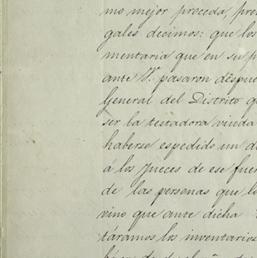 mo mejor proceda, pre
gales decimos: que los
mentaria que en su p
ante V. pasaron despue
General del Distrito q
ser la testadora viuda
haberse espedido un d
á los Jueces de ese fue
de las personas que lo
vino que ante dicha
táramos los inventarios